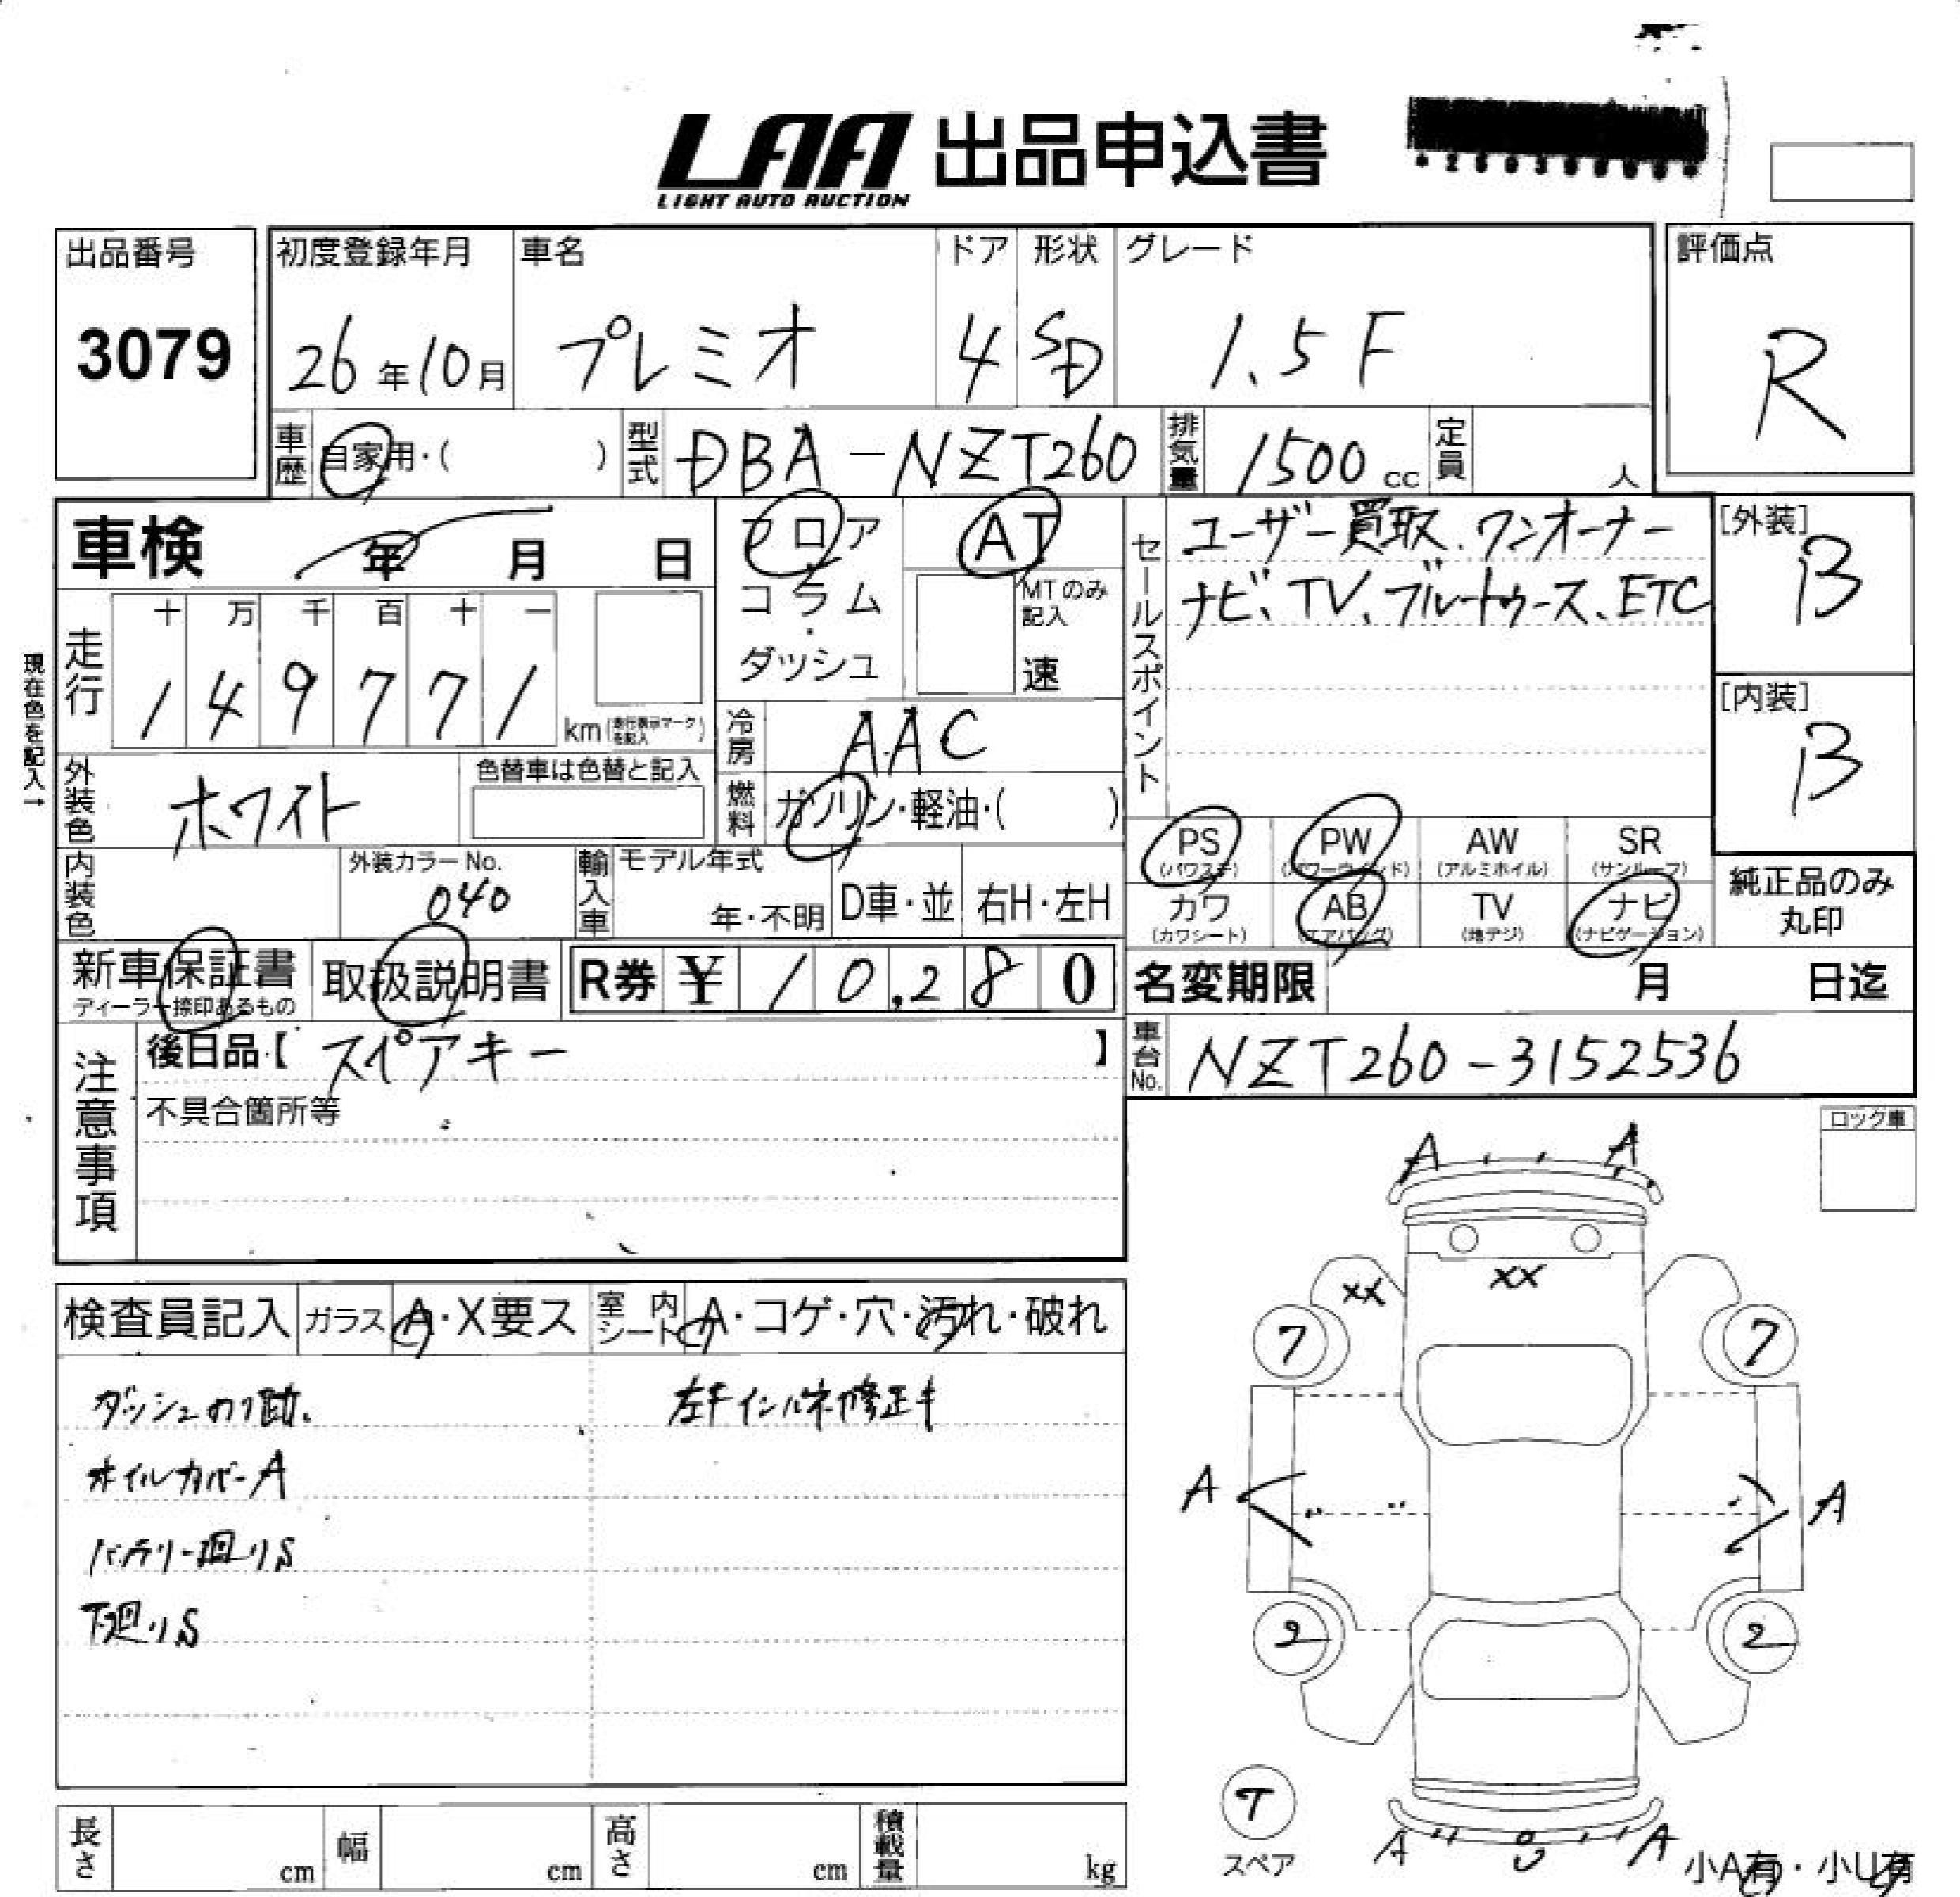 LAA 出品申込書
LIGHT AUTO AUCTION
出品番号
3079
初度登録年月
26年10月
車名
プレミオ
ドア
4
形状
SD
グレード
1.5F
評価点
R
車歴 自家用・( )
型式 DBA-NZT260
排気量 1500cc
定員 人
車検 年 月 日
フロア
コラム
・
ダッシュ
AT
MTのみ
記入
速
セールスポイント
ユーザー買取、ワンオーナー
ナビ、TV、ブルートゥース、ETC
[外装]
B
[内装]
B
現在色を記入→
走行
十 万 千 百 十 一
1 4 9 7 7 1 km(走行表示マークを記入)
冷房 AAC
外装色 ホワイト
色替車は色替と記入
燃料 ガソリン・軽油・( )
PS (パワステ)
PW (パワーウインド)
AW (アルミホイル)
SR (サンルーフ)
カワ (カワシート)
AB (エアバッグ)
TV (地デジ)
ナビ (ナビゲーション)
純正品のみ
丸印
内装色
外装カラーNo.
040
輸入車
モデル年式
年・不明
D車・並
右H・左H
新車保証書
ディーラー捺印あるもの
取扱説明書
R券 ¥ 10,280
名変期限 月 日迄
注意事項
後日品【 スペアキー 】
不具合箇所等
車台No. NZT260-3152536
ロック車
検査員記入
ガラス A・X要ス
室内シート A・コゲ・穴・汚れ・破れ
ダッシュのり跡.
左Fインパネ修正キ
ホイルカバーA
バッテリー廻りS
下廻りS
A A
XX XX
7 7
A A
2 2
T
スペア
A A
小A有・小U有
長さ cm
幅 cm
高さ cm
積載量 kg